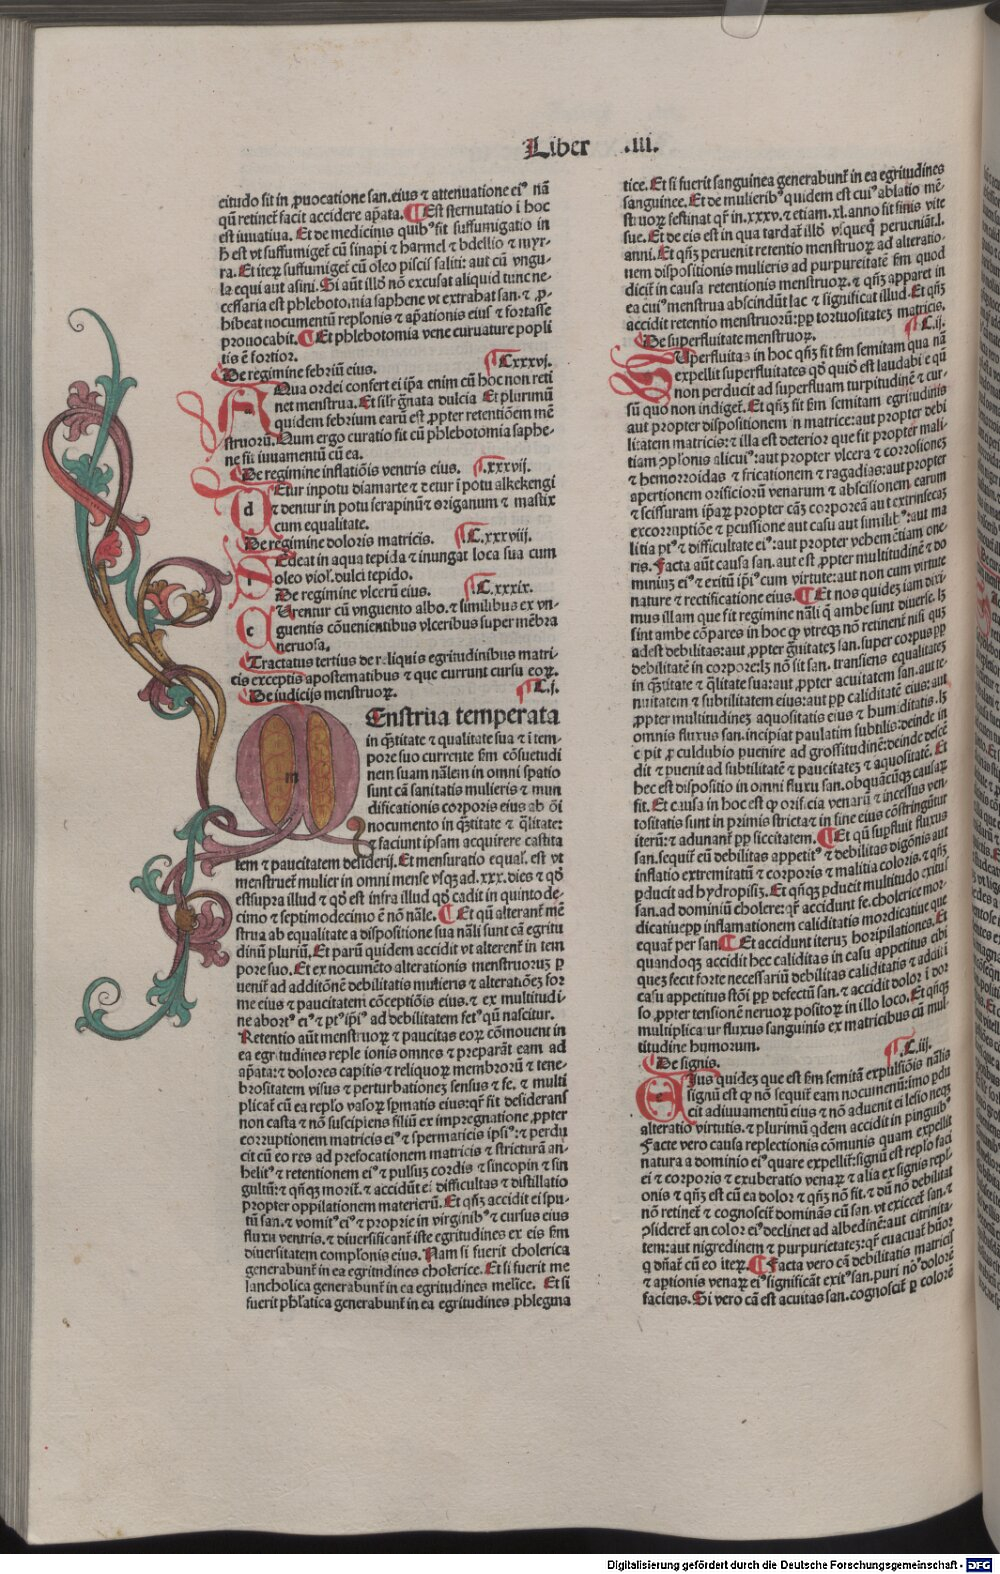 Liber .III.
citudo fit in ꝓuocatione san. eius ⁊ attenuatione ei⁹ nã
qñ retinet᷑ facit accidere apñta. ¶ Est sternutatio ĩ hoc
est iuuatiua. Et de medicinis quib⁹ fit suffumigatio in
h̃ est vt suffumiget᷑ cũ sinapi ⁊ harmel ⁊ bdellio ⁊ myr-
ra. Et iteꝝ suffumiget᷑ cũ oleo piscis saliti: aut cũ vngu-
la equi aut asini. Si aũt illd̃ nõ excusat aliquid tunc ne-
cessaria est phlebotomia saphene vt extrahat san. ⁊ ꝓ-
hibeat nocumentũ repl̃onis ⁊ apñationis eius ⁊ fortasse
prouocabit. ¶ Et phlebotomia vene curuature popli
tis ẽ fortior.
De regimine febriũ eius. C.xxxvj.
Aqua ordei confert ei ip̃a enim cũ hoc non reti
net menstrua. Et sil̃r g̃nata dulcia Et plurimũ
quidem febrium earũ est ꝓpter retentiõem mẽ
struorũ. Num ergo curatio fit cũ phlebotomia saphe-
ne fit iuuamentũ cũ ea.
De regimine inflatiõis ventris eius. .xxxvij.
d Etur in potu diamarte ⁊ detur ĩ potu alkekengi
⁊ dentur in potu serapinũ ⁊ origanum ⁊ mastix
cum equalitate.
De regimine doloris matricis. C.xxxviij.
Sedeat in aqua tepida ⁊ inungat loca sua cum
oleo viol. dulci tepido.
De regimine vlcerũ eius. C.xxxix.
c Urentur cũ vnguento albo. ⁊ similibus ex vn-
guentis cõuenientibus vlceribus super mẽbra
neruosa.
Tractatus tertius de reliquis egritudinibus matri-
cis exceptis apostematibus ⁊ que currunt cursu eoꝝ.
De iudicijs menstruoꝝ. C.j.
m Enstrua temperata
in q̃titate ⁊ qualitate sua ⁊ ĩ tem-
pore suo currente fm cõsuetudi
nem suam nãlem in omni spatio
sunt cã sanitatis mulieris ⁊ mun
dificationis corporis eius ab õi
nocumento in q̃titate ⁊ q̃litate:
⁊ faciunt ipsam acquirere castita
tem ⁊ paucitatem desiderij. Et mensuratio equal. est vt
menstruet᷑ mulier in omni mense vsqꝫ ad .xxx. dies ⁊ qd̃
est supra illud ⁊ qd̃ est infra illud qd̃ cadit in quinto de-
cimo ⁊ septimodecimo ẽ nõ nãle. ¶ Et qñ alterant᷑ mẽ
strua ab equalitate a dispositione sua nãli sunt cã egritu
dinũ pluriũ. Et parũ quidem accidit vt alterent᷑ in tem
pore suo. Et ex nocumẽto alterationis menstruoruꝫ ꝑ
uenit᷑ ad additõnẽ debilitatis mulieris ⁊ alteratiõeꝫ for
me eius ⁊ paucitatem cõceptiõis eius. ⁊ ex multitudi-
ne abort⁹ ei⁹ ⁊ pt⁹ ip̃i⁹ ad debilitatem fet⁹ qñ nascitur.
Retentio aũt menstruoꝝ ⁊ paucitas eoꝝ cõmouent in
ea egritudines repletionis omnes ⁊ preparãt eam ad
apñta: ⁊ dolores capitis ⁊ reliquoꝝ membrorũ ⁊ tene-
brositatem visus ⁊ perturbationeꝫ sensus ⁊ fe. ⁊ multi
plicat᷑ cũ ea repl̃o vasoꝝ sꝑmatis eius: qr̃ fit desiderans
non casta ⁊ nõ suscipiens filiũ ex impregnatione ꝓpter
corruptionem matricis ei⁹ ⁊ spermaticis ipsi⁹: ⁊ perdu
cit cũ eo res ad prefocationem matricis ⁊ stricturã an-
helit⁹ ⁊ retentionem ei⁹ ⁊ pulsuꝫ cordis ⁊ sincopin ⁊ sin
gultũ: ⁊ qñqꝫ morit᷑. ⁊ accidũt ei difficultas ⁊ distillatio
propter oppilationem materierũ. Et qñꝫ accidit ei spu-
tũ san. ⁊ vomit⁹ ei⁹ ⁊ proprie in virginib⁹ ⁊ cursus eius
fluxu ventris. ⁊ diuersificant᷑ iste egritudines ex eis fm
diuersitatem cõplonis eius. Nam si fuerit cholerica
generabunt᷑ in ea egritudines cholerice. Et si fuerit me
lancholica generabunt᷑ in ea egritudines melãce. Et si
fuerit phl̃atica generabunt᷑ in ea egritudines phlegma
tice. Et si fuerit sanguinea generabunt᷑ in ea egritudines
sanguinee. ¶ Et de mulierib⁹ quidem est cui⁹ ablatio mẽ
struoꝝ festinat qr̃ in .xxxv. ⁊ etiam .xl. anno fit finis vite
sue. Et de eis est in qua tardat᷑ illd̃ vsquequo perueniãt .l.
anni. Et qñꝫ peruenit retentio menstruoꝝ ad alteratio-
nem dispositionis mulieris ad purpureitatẽ fm quod
dicit᷑ in causa retentionis menstruoꝝ. ⁊ qñꝫ apparet in
ea cui⁹ menstrua abscindũt lac ⁊ significat illud. Et qñꝫ
accidit retentio menstruorũ: ꝑp tortuositateꝫ matricis.
De superfluitate menstruoꝝ. C.ij.
Superfluitas in hoc qñꝫ fit fm semitam qua nã
expellit superfluitates qd̃ quid̃ est laudabile qñ
non perducit ad superfluam turpitudinẽ ⁊ cur-
sũ quo non indiget᷑. Et qñꝫ fit fm semitam egritudinis
aut propter dispositionem in matrice: aut propter debi
litatem matricis: ⁊ illa est deterior que fit propter mali-
tiam cõplonis alicui⁹: aut propter vlcera ⁊ corrosioneꝫ
⁊ hemorroidas ⁊ fricationem ⁊ ragadias: aut propter
apertionem orificiorũ venarum ⁊ abscisionem earum
⁊ scissuram ip̃aꝝ propter cãs corporeã aut extrinsecaꝫ
excorruptiõe ⁊ ꝑcussione aut casu aut simili⁹: aut ma
litia pt⁹ ⁊ difficultate ei⁹: aut propter vehemẽtiam one
ris. Facta aũt causa san. aut est ꝓpter multitudinẽ ⁊ do
miniuꝫ ei⁹ ⁊ exitũ ip̃i⁹ cum virtute: aut non cum virtute
nature ⁊ rectificatione eius. ¶ Et nos quideꝫ iam dixi-
mus illam que fit regimine nãli q̃ ambe sunt diuerse. lꝫ
sint ambe cõpares in hoc ꝙ vtreqꝫ nõ retinent᷑ nisi quã
adest debilitas: aut ꝓpter g̃uitateꝫ san. super corpus ꝑp
debilitatẽ in corpore: lꝫ nõ sit san. transiens equalitateꝫ
in q̃titate ⁊ q̃litate sua: aut ꝓpter acuitatem san. aut te-
nuitatem ⁊ subtilitatem eius: aut ꝑp caliditatẽ eius: aut
ꝓpter multitudineꝫ aquositatis eius ⁊ humiditatis. lꝫ
omnis fluxus san. incipiat paulatim subtilis: deinde in
cepit ꝓculdubio puenire ad grossitudinẽ: deinde descẽ
dit ⁊ puenit ad subtilitatẽ ⁊ paucitateꝫ ⁊ aquositatẽ. Et
hec est dispositio in omni fluxu san. ob quãcũqꝫ causaꝫ
fit. Et causa in hoc est ꝙ orificia venarũ ⁊ incessus ven-
tositatis sunt in primis stricta ⁊ in fine eius cõstringũtur
iterũ: ⁊ adunant᷑ ꝑp siccitatem. ¶ Et qñ supfluit fluxus
san. sequit᷑ eũ debilitas appetit⁹ ⁊ debilitas digõnis aut
inflatio extremitatũ ⁊ corporis ⁊ malitia coloris. ⁊ qñꝫ
ꝑducit ad hydropisiꝫ. Et qñqꝫ ꝑducit multitudo exitus
san. ad dominiũ cholere: qr̃ accidunt fe. cholerice mor-
dicatiue ꝑp inflamationem caliditatis mordicatiue que
equat᷑ per san. ¶ Et accidunt iteruꝫ horipilationes. Et
quandoqꝫ accidit hec caliditas in casu appetitus cibi
queꝫ secut᷑ forte necessariũ debilitas caliditatis ⁊ addit᷑ ĩ
casu appetitus stõi ꝑp defectũ san. ⁊ accidit dolor ĩ dor
so. ꝓpter tensionẽ neruoꝝ positoꝝ in illo loco. Et qñqꝫ
multiplicatur fluxus sanguinis ex matricibus cũ mul-
titudine humorum.
De signis. C.iij.
e Jus quideꝫ que est fm semitã expulsiõis nãlis
signũ est ꝙ nõ sequit᷑ eam nocumenũ: imo ꝑdu
cit adiuuamentũ eius ⁊ nõ aduenit ei lesio neqꝫ
alteratio virtutis. ⁊ plurimũ q̃dem accidit in pinguib⁹
Facte vero causa replectionis cõmunis quam expellit
natura a dominio ei⁹ quare expellit᷑: signũ est repl̃o faciꝫ
ei ⁊ corporis ⁊ exuberatio venaꝝ ⁊ alia ex signis repl̃-
onis ⁊ qñꝫ est cũ ea dolor ⁊ qñꝫ nõ fit. ⁊ dũ nõ debilitat
nõ retinet᷑ ⁊ cognoscit᷑ dominãs cũ san. vt exiccet᷑ san. ⁊
ꝯsideret᷑ an color ei⁹ declinet ad albedinẽ: aut citrinita-
tem: aut nigredinem ⁊ purpuritateꝫ: qr̃ euacuat᷑ hũoꝫ
q dñat᷑ cũ eo iteꝝ. ¶ Facta vero cã debilitatis matricis
⁊ aptionis venaꝝ ei⁹ significãt exit⁹ san. puri nõ dolorẽ
faciens. Si vero cã est acuitas san. cognoscit᷑ ꝑ colorẽ
Digitalisierung gefördert durch die Deutsche Forschungsgemeinschaft - DFG